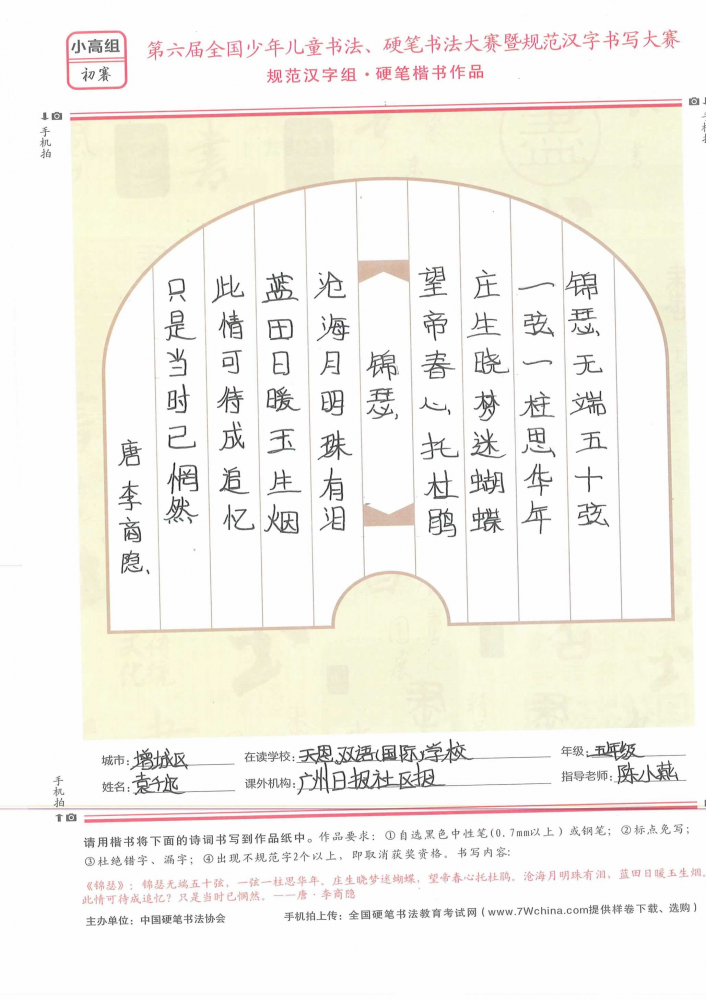 小高组
初赛
第六届全国少年儿童书法、硬笔书法大赛暨规范汉字书写大赛
规范汉字组·硬笔楷书作品
手机拍
锦瑟无端五十弦
一弦一柱思华年
庄生晓梦迷蝴蝶
望帝春心托杜鹃
锦瑟
沧海月明珠有泪
蓝田日暖玉生烟
此情可待成追忆
只是当时已惘然
唐李商隐
城市：增城区
在读学校：天恩双语(国际)学校
年级：五年级
姓名：袁千
课外机构：广州日报社区报
指导老师：陈小燕
手机拍
请用楷书将下面的诗词书写到作品纸中。作品要求：①自选黑色中性笔(0.7mm以上)或钢笔；②标点免写；
③杜绝错字、漏字；④出现不规范字2个以上，即取消获奖资格。书写内容：
《锦瑟》：锦瑟无端五十弦，一弦一柱思华年。庄生晓梦迷蝴蝶，望帝春心托杜鹃。沧海月明珠有泪，蓝田日暖玉生烟。
此情可待成追忆？只是当时已惘然。——唐·李商隐
主办单位：中国硬笔书法协会
手机拍上传：全国硬笔书法教育考试网(www.7Wchina.com提供样卷下载、选购)